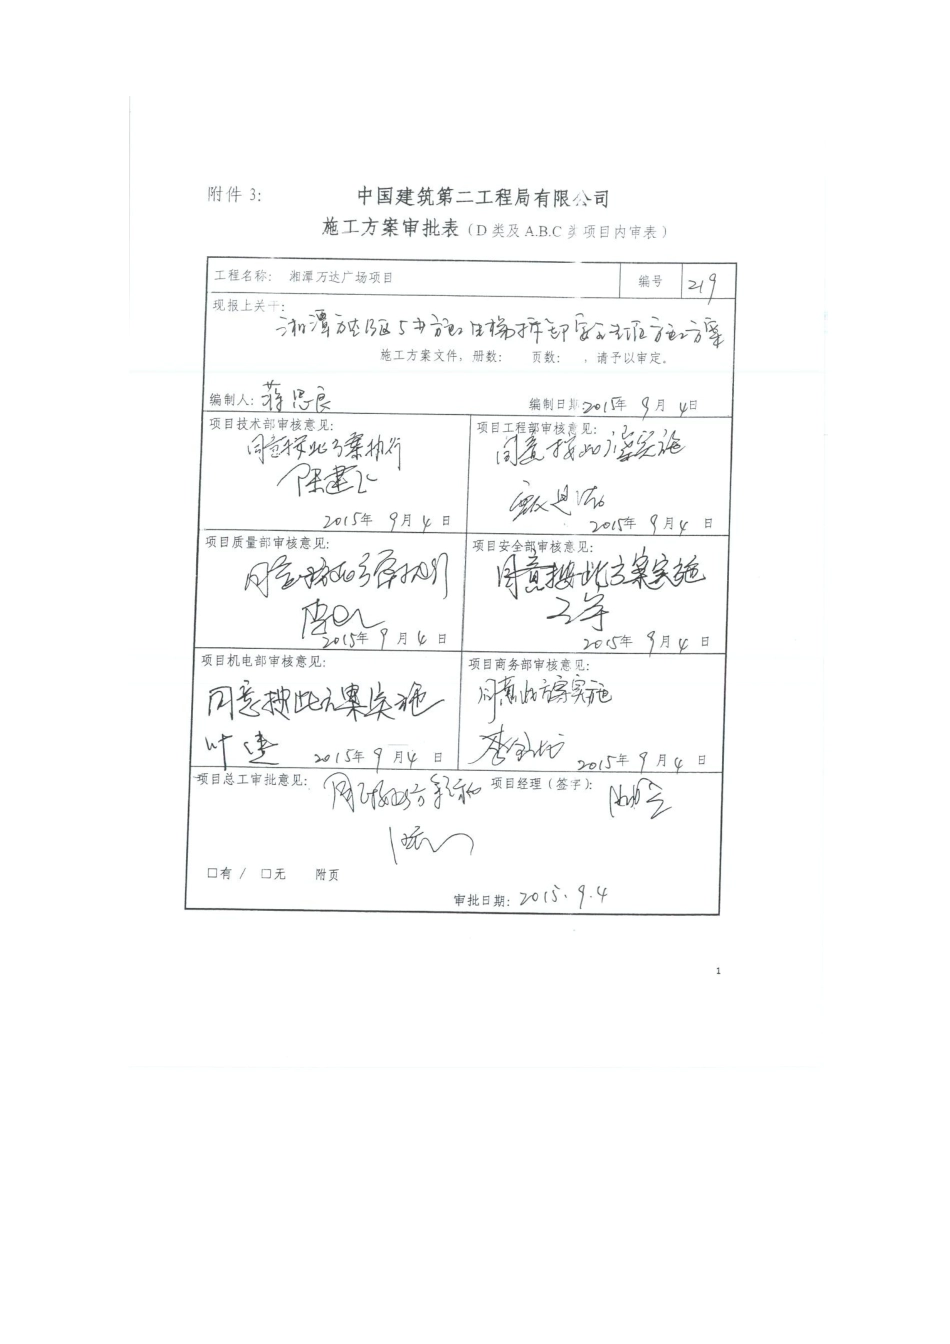 附件 3: 中国建筑第二工程局有限公司
施工方案审批表（D 类及 A.B.C 类 项目内审表）
工程名称： 湘潭万达广场项目 编号 219
现报上关于：
湘潭万达 施工电梯拆卸安全 施工方案
施工方案文件，册数： 页数： ，请予以审定。
编制人：蒋思良 编制日期 2015年 9月 4日
项目技术部审核意见： 项目工程部审核意见：
同意按此方案执行 同意按此方案实施
陈建飞
2015年 9月 4日 2015年 9月 4日
项目质量部审核意见： 项目安全部审核意见：
同意按此方案执行 同意按此方案实施
2015年 9月 4日 2015年 9月 4日
项目机电部审核意见： 项目商务部审核意见：
同意按此方案实施 同意此方案实施
叶 2015年 9月 4日 李 2015年 9月 4日
项目总工审批意见： 项目经理（签字）：
□有 / □无 附页
审批日期：2015.9.4
1